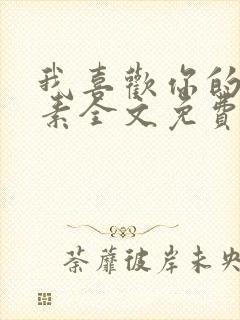 我喜歡你的
素全文免費
荼蘼彼岸未央